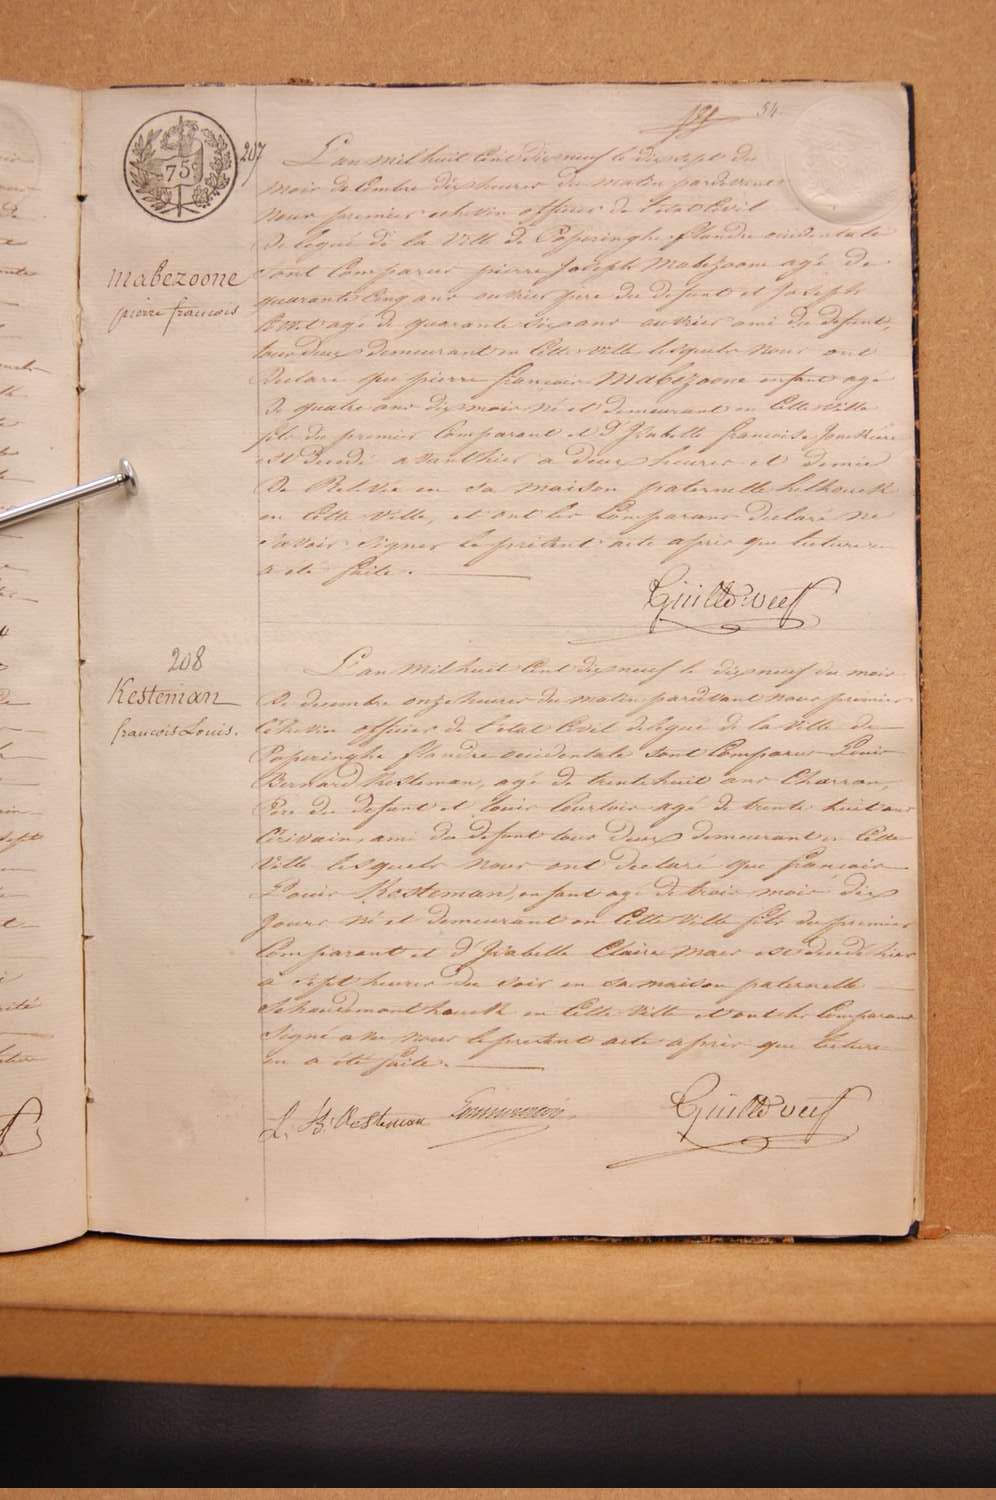 54
75c
207
L'an mil huit Cent dix neuf le dix sept du
mois dcembre dix heures du matin pardevant
nous premier echevin officier de l'etat Civil
delegué de la Ville de Poperinghe flandre occidentale
sont Comparus pierre Joseph Mabezoone agé de
Mabezoone
pierre francois
quarante Cinq ans ouvrier pere du defunt et Joseph
agé de quarante six ans ouvrier ami du defunt,
tous deux demeurant en Cette ville lesquels nous ont
declare que pierre françois Mabezoone enfant agé
de quatre ans dix mois né et demeurant en Cette Ville
fils du premier Comparant et d'Isabelle francoise
est decedé avanthier a deux heures et demie
de en sa maison paternelle helhouck
en Cette Ville, et ont les Comparans declaré ne
savoir signer le présent acte après que lecture en
a eté faite.
Guillo Veef
208
Kesteman
francois Louis.
L'an mil huit Cent dix neuf le dix neuf du mois
de decembre onze heures du matin pardevant nous premier
Echevin officier de l'etat Civil delegué de la Ville de
Poperinghe flandre occidentale sont Comparus Louis
Bernard Kesteman, agé de trente huit ans Charron,
Pere du defunt et Louis Courtois agé de trente huit ans
Ecrivain, ami du defunt tous deux demeurant en Cette
Ville lesquels nous ont declaré que francois
Louis Kesteman, enfant agé de trois mois dix
Jours né et demeurant en Cette Ville fils du premier
Comparant et d'Isabelle Claire Maes est decedé hier
à sept heures du soir en sa maison paternelle
en Cette Ville et ont les Comparans
signé avec nous le present acte après que lecture
en a été faite.
L. B. Kesteman
Guillo Veef